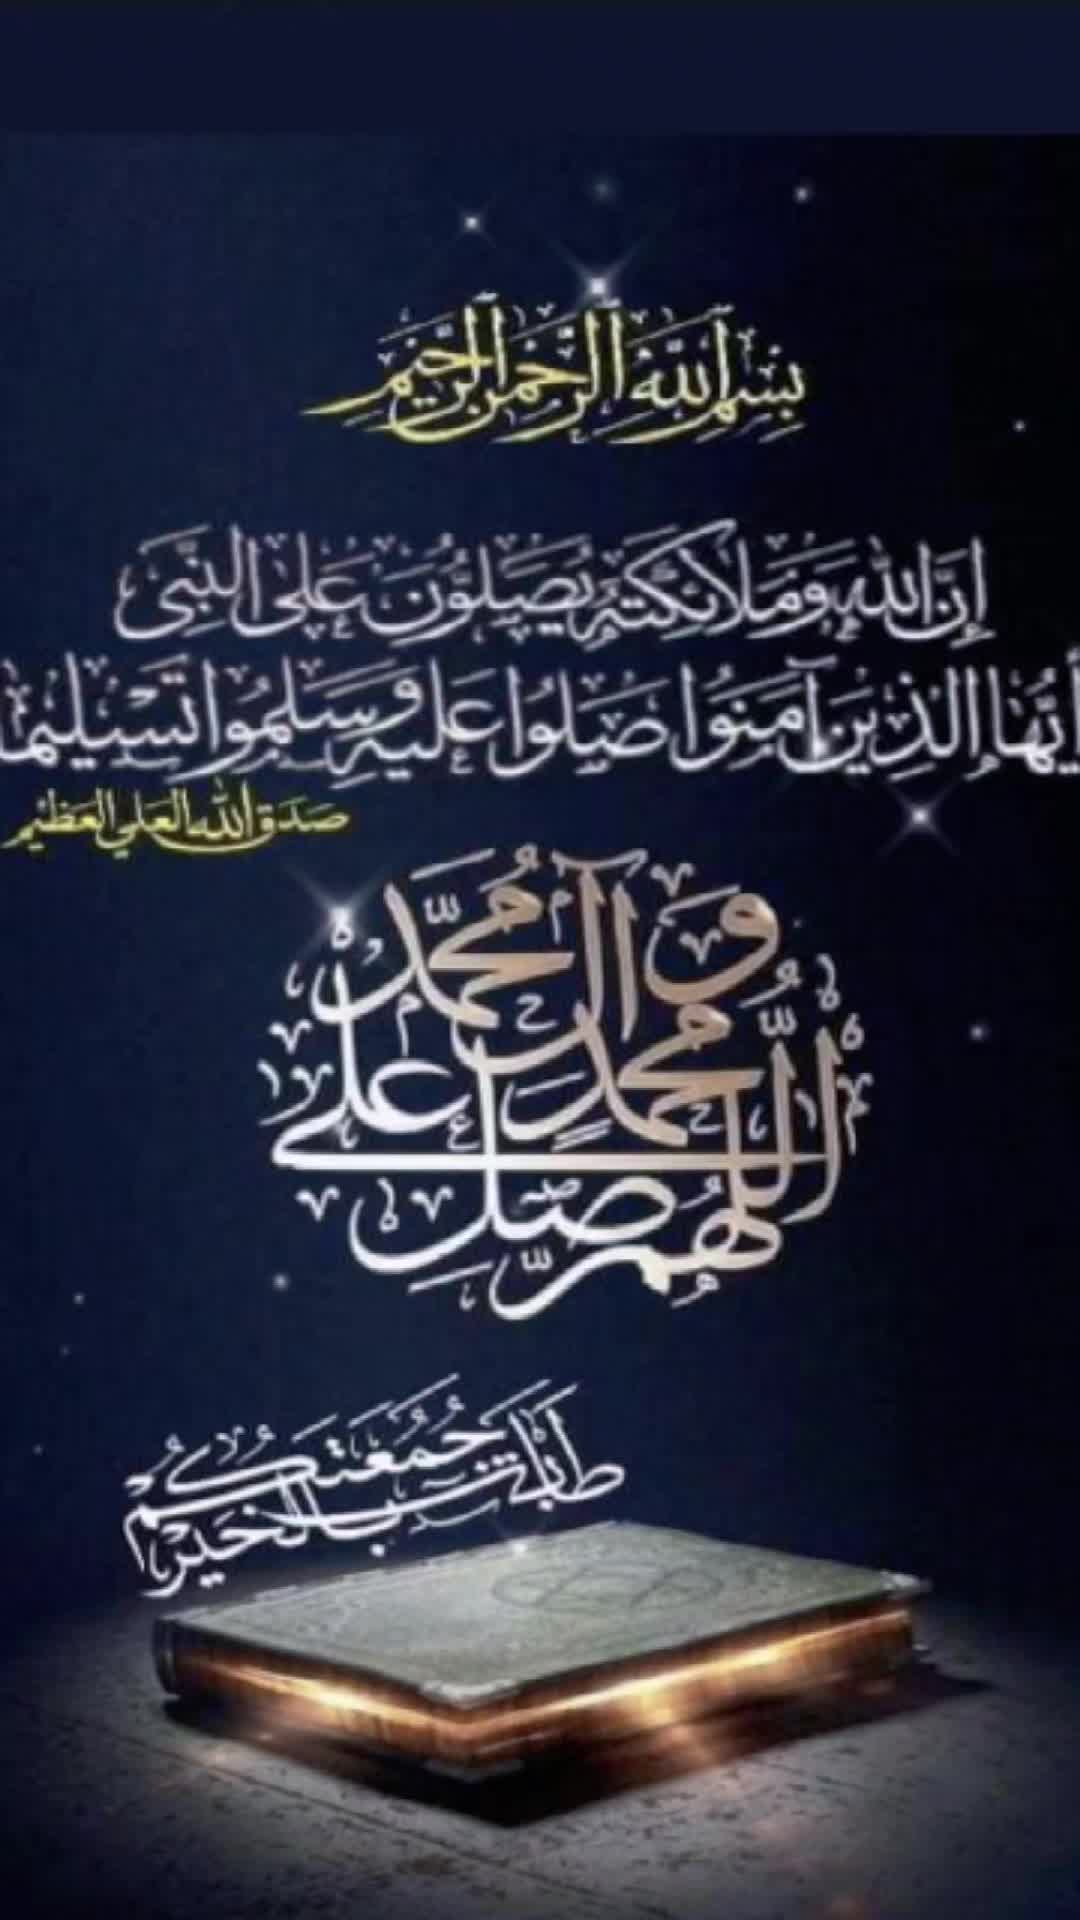 بِسْمِ اللَّهِ الرَّحْمَنِ الرَّحِيمِ
إِنَّ اللهَ وَمَلَائِكَتَهُ يُصَلُّونَ عَلَى النَّبِي
أَيُّهَا الَّذِينَ آمَنُوا صَلُّوا عَلَيْهِ وَسَلِّمُوا تَسْلِيمًا
صدق الله العلي العظيم
اللَّهُمَّ صَلِّ عَلَى مُحَمَّدٍ وَآلِ مُحَمَّدٍ
طابت جمعتكم بالخير